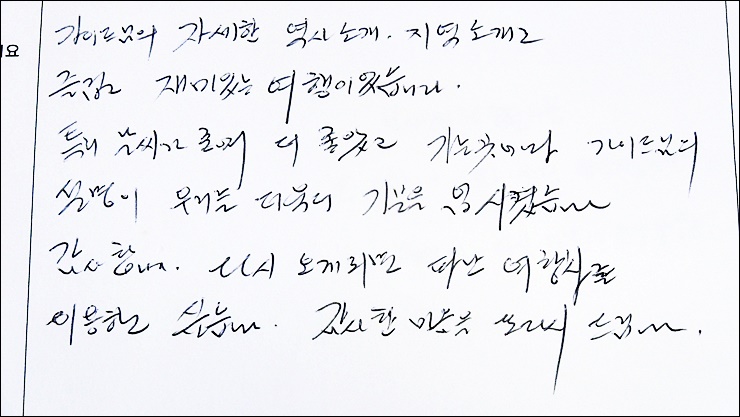 가이드님의 자세한 역사소개. 지역소개로
즐겁고 재미있는 여행이었습니다.
특히 날씨가 좋아서 더 좋았고 가는곳마다 가이드님의
설명이 우리를 더욱더 기분을 시켰습니다
감사합니다. 다시 오게되면 여행사를
이용하고 싶습니다. 감사한 마음을
요